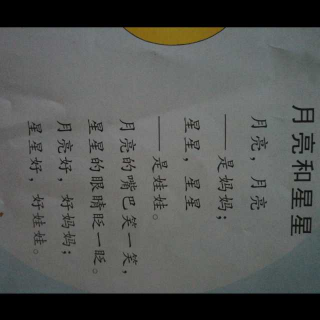 月亮和星星
月亮，月亮
——是妈妈；
星星，星星
——是娃娃。
月亮的嘴巴笑一笑，
星星的眼睛眨一眨。
月亮好，好妈妈；
星星好，好娃娃。